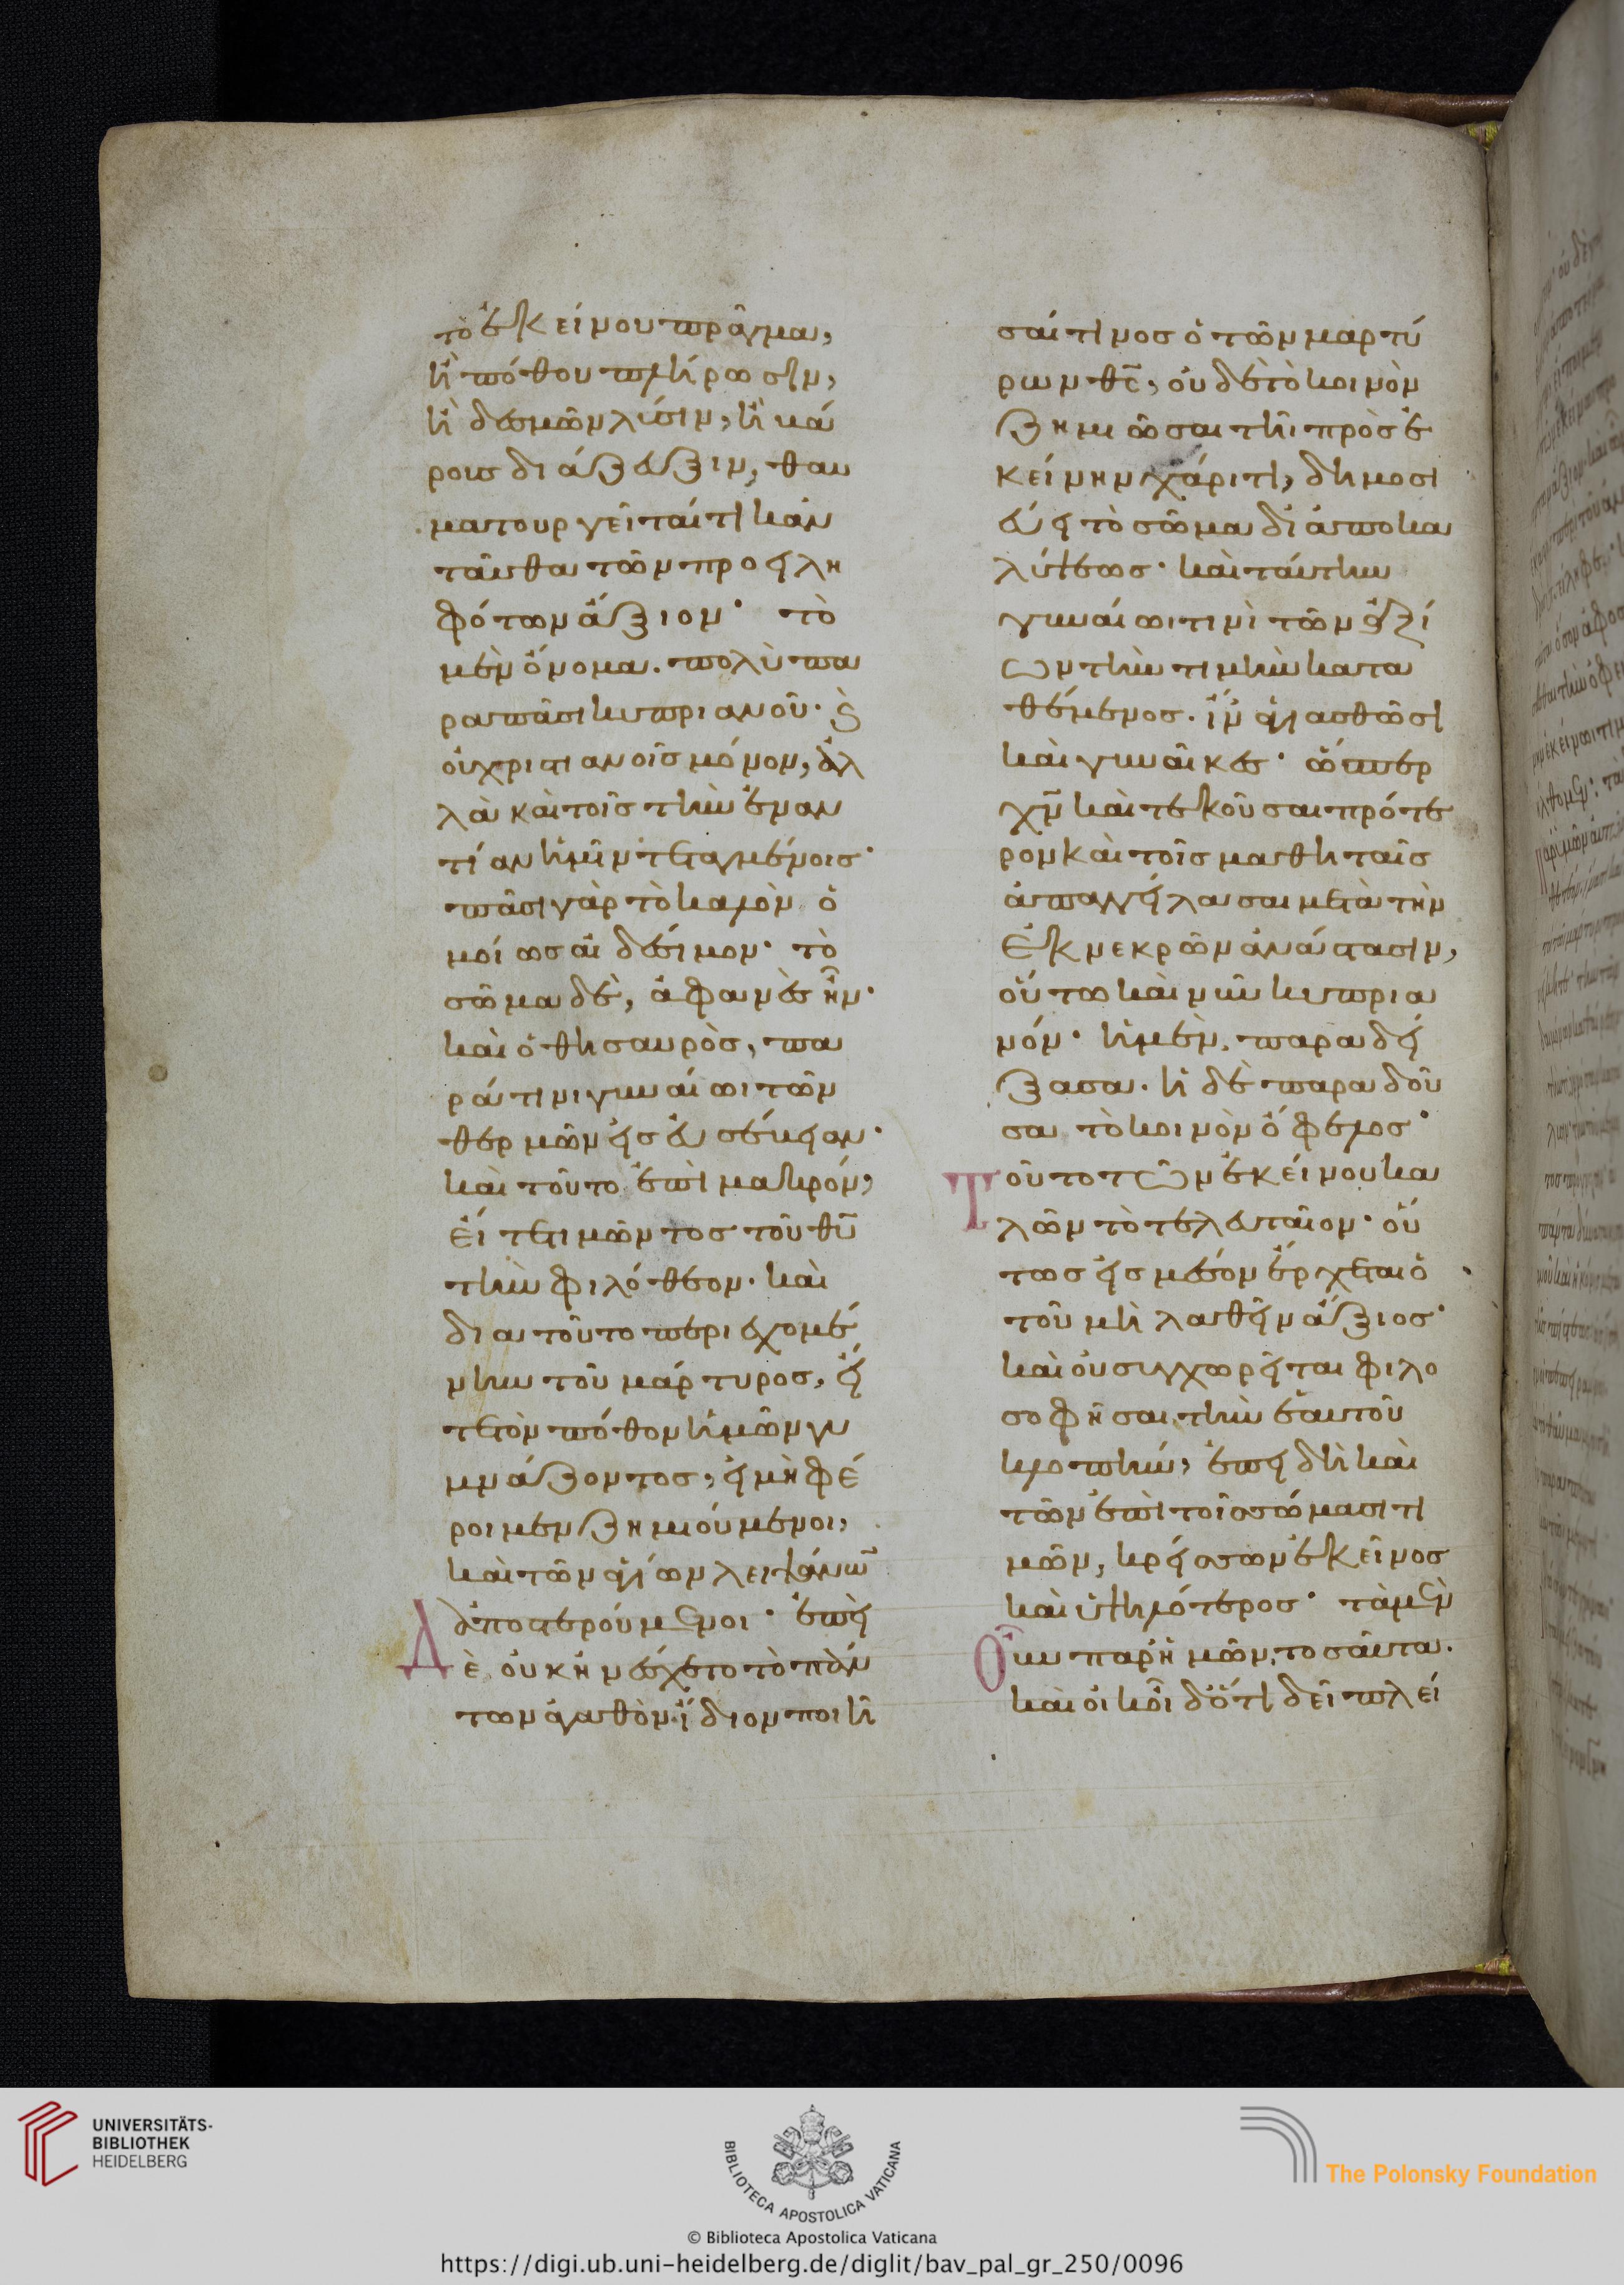 τὸ ἐκείνου πρᾶγμα,
ἢ πόθου πλήρωσιν,
ἢ δεσμῶν λύσιν, ἢ κά
ρους διάζευξιν, θαυ
ματουργεῖταί τι κἀν
ταῦθα τῶν προειλη
φότων ἄξιον· τὸ
μὲν ὄνομα. πολὺ πα
ρὰ πᾶσι κυπριανοῦ· καὶ
οὐ χριστιανοῖς μόνον, ἀλ
λὰ καὶ τοῖς τὴν ἐναν
τίαν ἡμῖν τεταγμένοις·
πᾶσι γὰρ τὸ καλὸν ὁ
μοίως αἰδέσιμον· τὸ
σῶμα δὲ, ἀφανὲς ἦν·
καὶ ὁ θησαυρὸς, πα
ρά τινι γυναίωι τῶν
θερμῶν εἰς εὐσέβειαν·
καὶ τοῦτο ἐπὶ μακρόν,
εἴτε τιμῶντος τοῦ θυ
τὴν φιλόθεον· καὶ
διατοῦτο περιεχομέ
νην τοῦ μάρτυρος, εἴ
τε τὸν πόθον ἡμῶν γυ
μνάζοντος, εἰ μὴ φέ
ροιμεν ζημιούμενοι,
καὶ τῶν ἁγίων λειψάνω
ἀποστερούμενοι· ἐπεὶ
Δὲ οὐκ ἠνέσχετο τὸ πάν
των ἀγαθὸν ἴδιον ποιῆ
σαί τινος ὁ τῶν μαρτύ
ρων θς, οὐδὲ τὸ κοινὸν
ζημιῶσαι τῆι πρὸς ἐ
κείνην χάριτι, δημοσι
εύει τὸ σῶμα δι' ἀποκα
λύψεως· καὶ ταύτην
γυναίωι τινὶ τῶν ἀξί
ων τὴν τιμὴν κατα
θέμενος. ἵν' ἁγιασθῶσι
καὶ γυναῖκες· ὥσπερ
χν καὶ τεκοῦσαι πρότε
ρον καὶ τοῖς μαθηταῖς
ἀπαγγείλασαι μετὰ τὴν
ἐκ νεκρῶν ἀνάστασιν,
οὕτω καὶ νῦν κυπρια
νόν· ἡ μὲν, παραδεί
ξασα. ἡ δὲ παραδοῦ
σα τὸ κοινὸν ὄφελος·
Τοῦτο τῶν ἐκείνου κα
λῶν τὸ τελευταῖον· οὕ
τως εἰς μέσον ἔρχεται ὁ
τοῦ μὴ λαθεῖν ἄξιος·
καὶ οὐ συγχωρεῖται φιλο
σοφῆσαι τὴν ἑαυτοῦ
κλοπήν, ἐπεὶ δὴ καὶ
τῶν ἐπὶ τοῖς σώμασι τι
μῶν, κρείσσων ἐκεῖνος
καὶ ὑψηλότερος· τὰ μὲν
Οὖν παρ' ἡμῶν, τοσαῦτα.
καὶ οὐκ οἶδ' ὅτι δεῖ πλεί
UNIVERSITÄTS-
BIBLIOTHEK
HEIDELBERG
BIBLIOTECA APOSTOLICA VATICANA
The Polonsky Foundation
© Biblioteca Apostolica Vaticana
https://digi.ub.uni-heidelberg.de/diglit/bav_pal_gr_250/0096